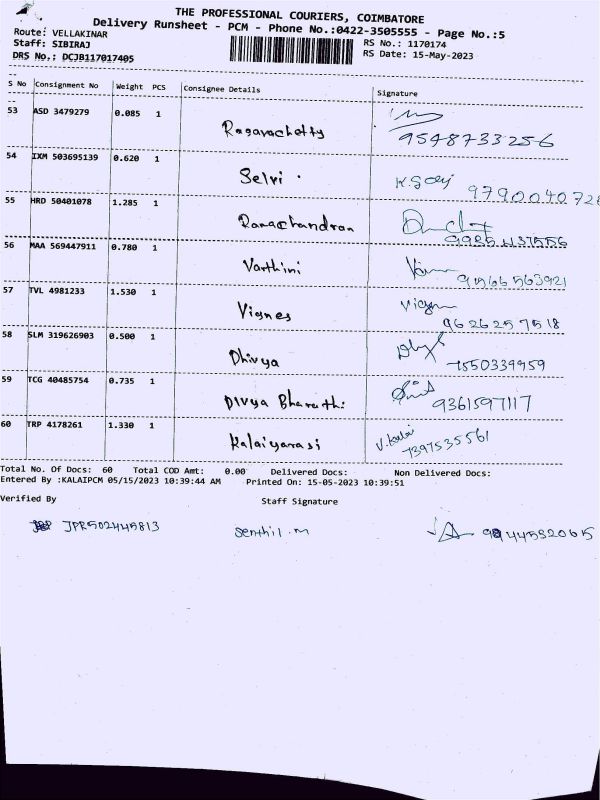 THE PROFESSIONAL COURIERS, COIMBATORE
Delivery Runsheet - PCM - Phone No.:0422-3505555 - Page No.:5
Route: VELLAKINAR
Staff: SIBIRAJ
DRS No.: DCJB117017405
RS No.: 1170174
RS Date: 15-May-2023
S No Consignment No Weight PCS Consignee Details Signature
53 ASD 3479279 0.085 1 Ragavachetty 9548733256
54 IXM 503695139 0.620 1 Selvi 979004072
55 HRD 50401078 1.285 1 Ramachandran
56 MAA 569447911 0.780 1 Varthini 9566563921
57 TVL 4981233 1.530 1 Vignes 9626257518
58 SLM 319626903 0.500 1 Dhivya 7550339959
59 TCG 40485754 0.735 1 Divya Bharathi 9361597117
60 TRP 4178261 1.330 1 Kalaiyarasi V.kalai 7397535561
Total No. Of Docs: 60 Total COD Amt: 0.00 Delivered Docs: Non Delivered Docs:
Entered By :KALAIPCM 05/15/2023 10:39:44 AM Printed On: 15-05-2023 10:39:51
Verified By Staff Signature
JPR502445813 Senthil.m